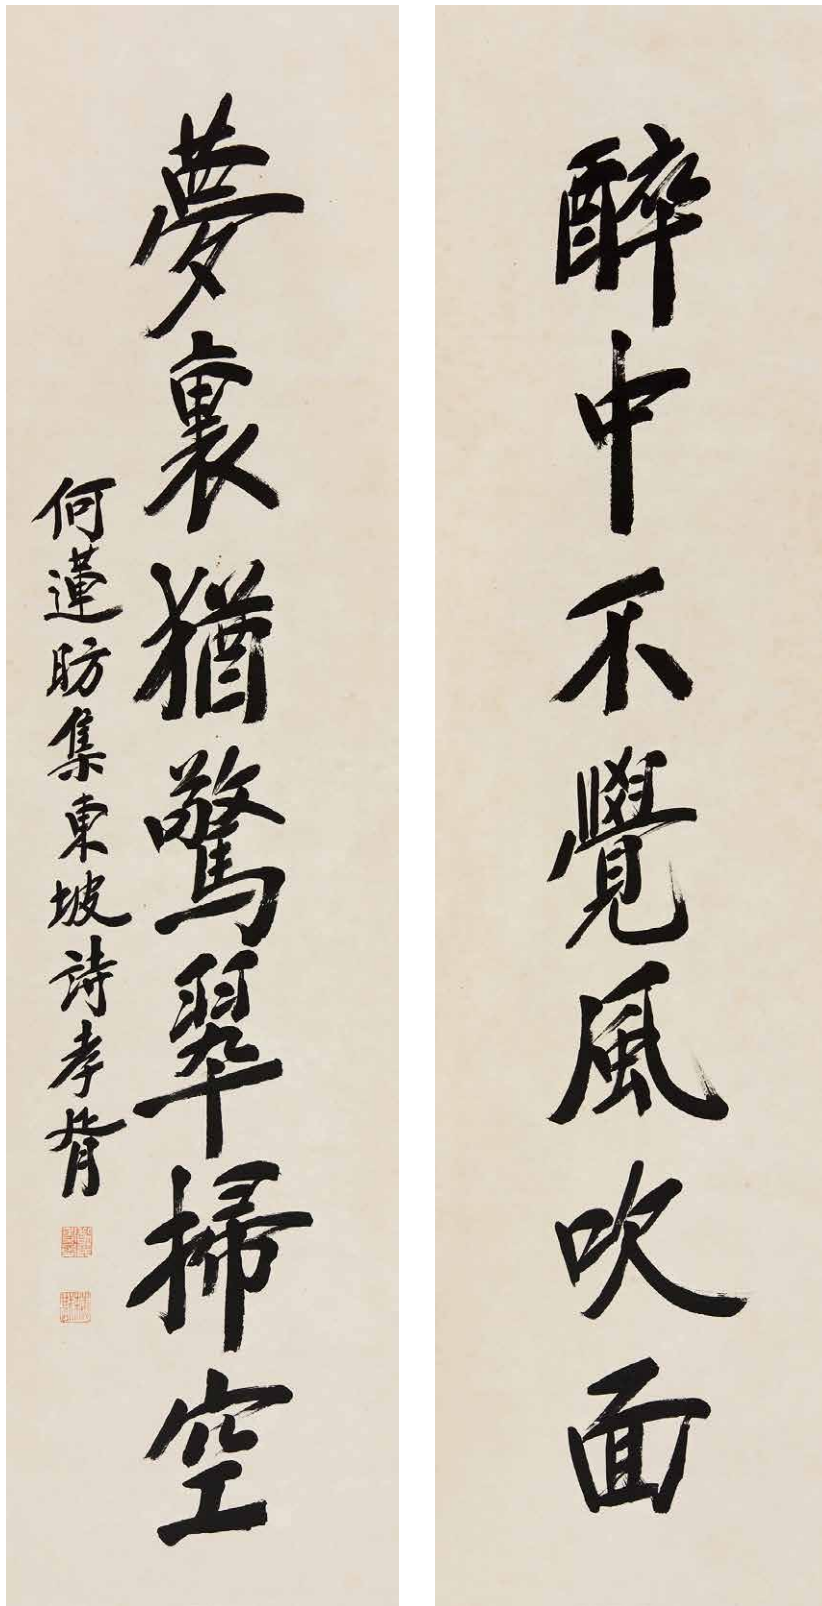 醉中不覺風吹面
夢裏猶驚翠掃空
何蓮昉集東坡詩孝胥